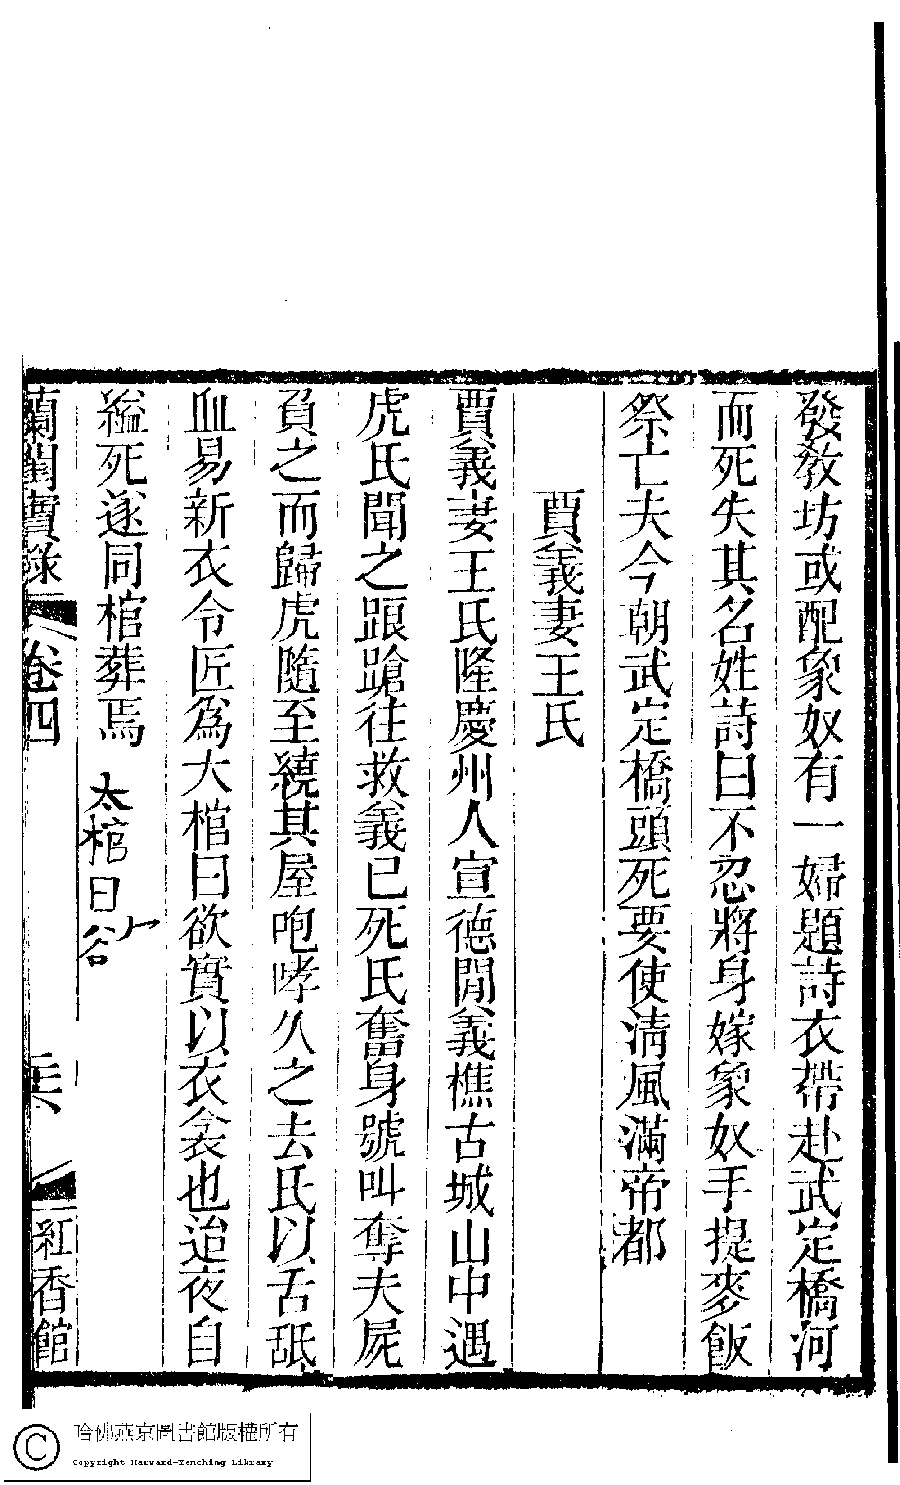 發敎坊或配象奴有一婦題詩衣帶赴武定橋河
而死失其名姓詩曰不忍將身嫁象奴手提麥飯
祭亡夫今朝武定橋頭死要使淸風滿帝都
賈義妻王氏
賈義妻王氏隆慶州人宣德間義樵古城山中遇
虎氏聞之踉蹌往救義已死氏奮身號叫奪夫屍
負之而歸虎隨至繞其屋咆哮久之去氏以舌舐
血易新衣令匠爲大棺曰欲實以衣衾也迨夜自
縊死遂同棺葬焉
太棺日
蘭閨寶錄
卷四
紅香館
哈佛燕京圖書館版權所有
Copyright Harvard-Yenching Library